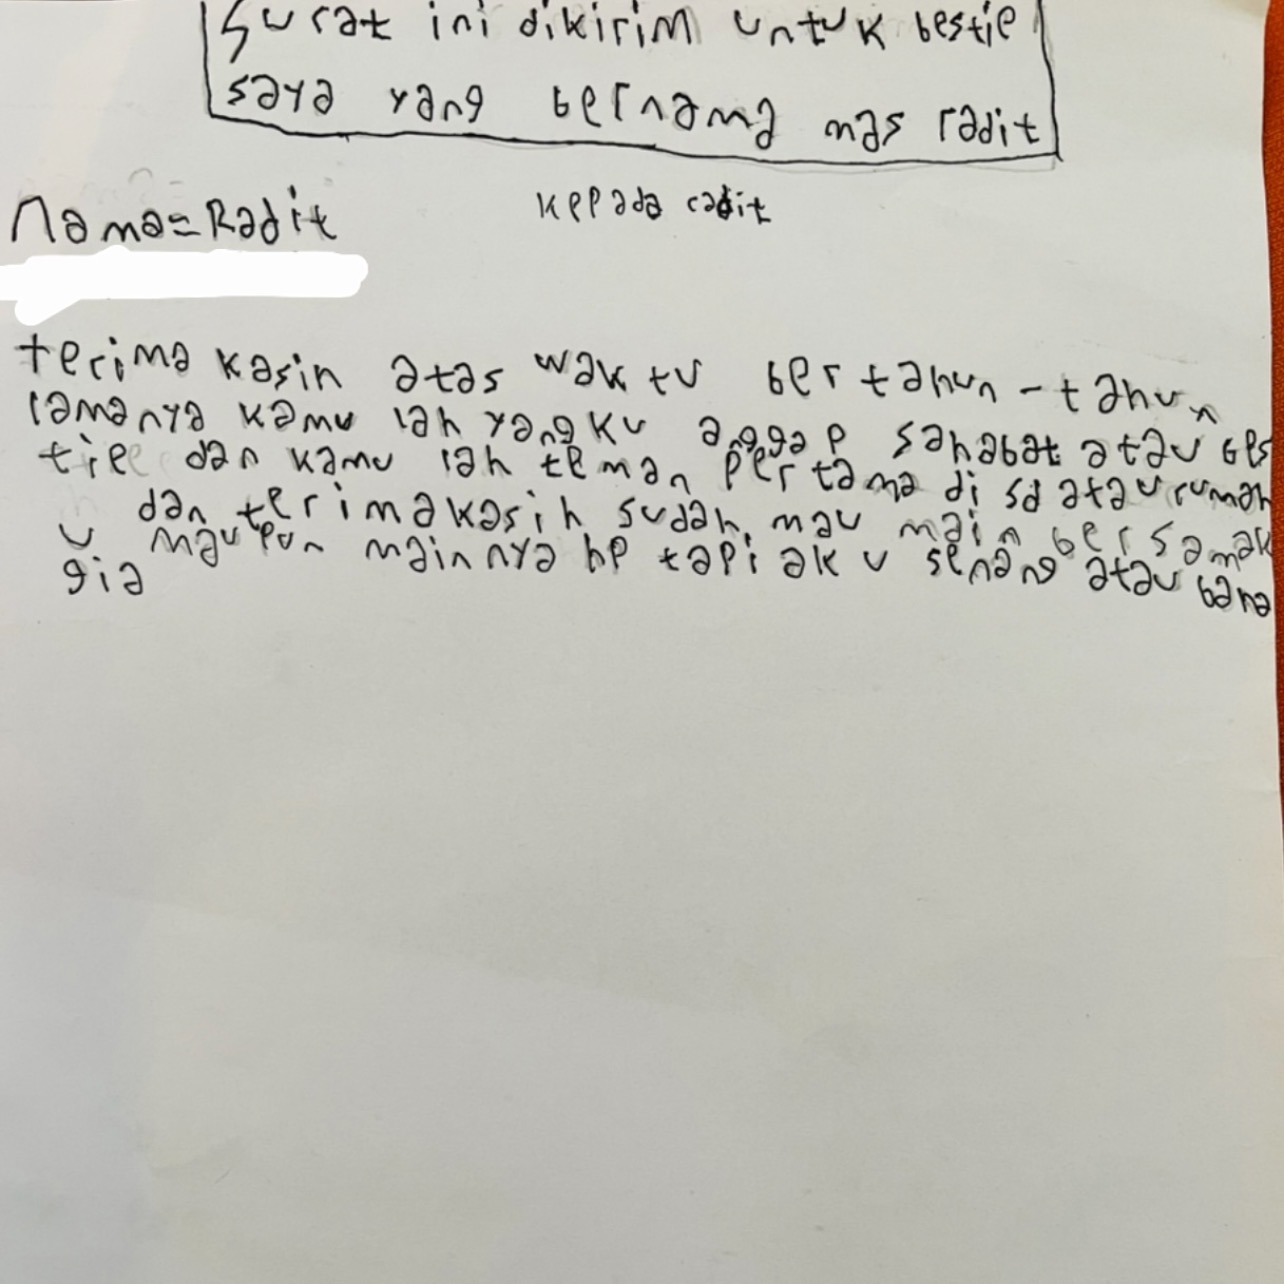 Surat ini dikirim untuk bestie
saya yang bernama mas radit
Nama=Radit
Keppada radit
terima kasih atas waktu bertahun-tahun
lamanya kamu lah yang ku anggap sahabat atau bes
tiee dan kamu lah teman pertama di sd atau rumah
dan terimakasih sudah mau main bersamak
u maupun mainnya hp tapi aku senang atau baha
gia